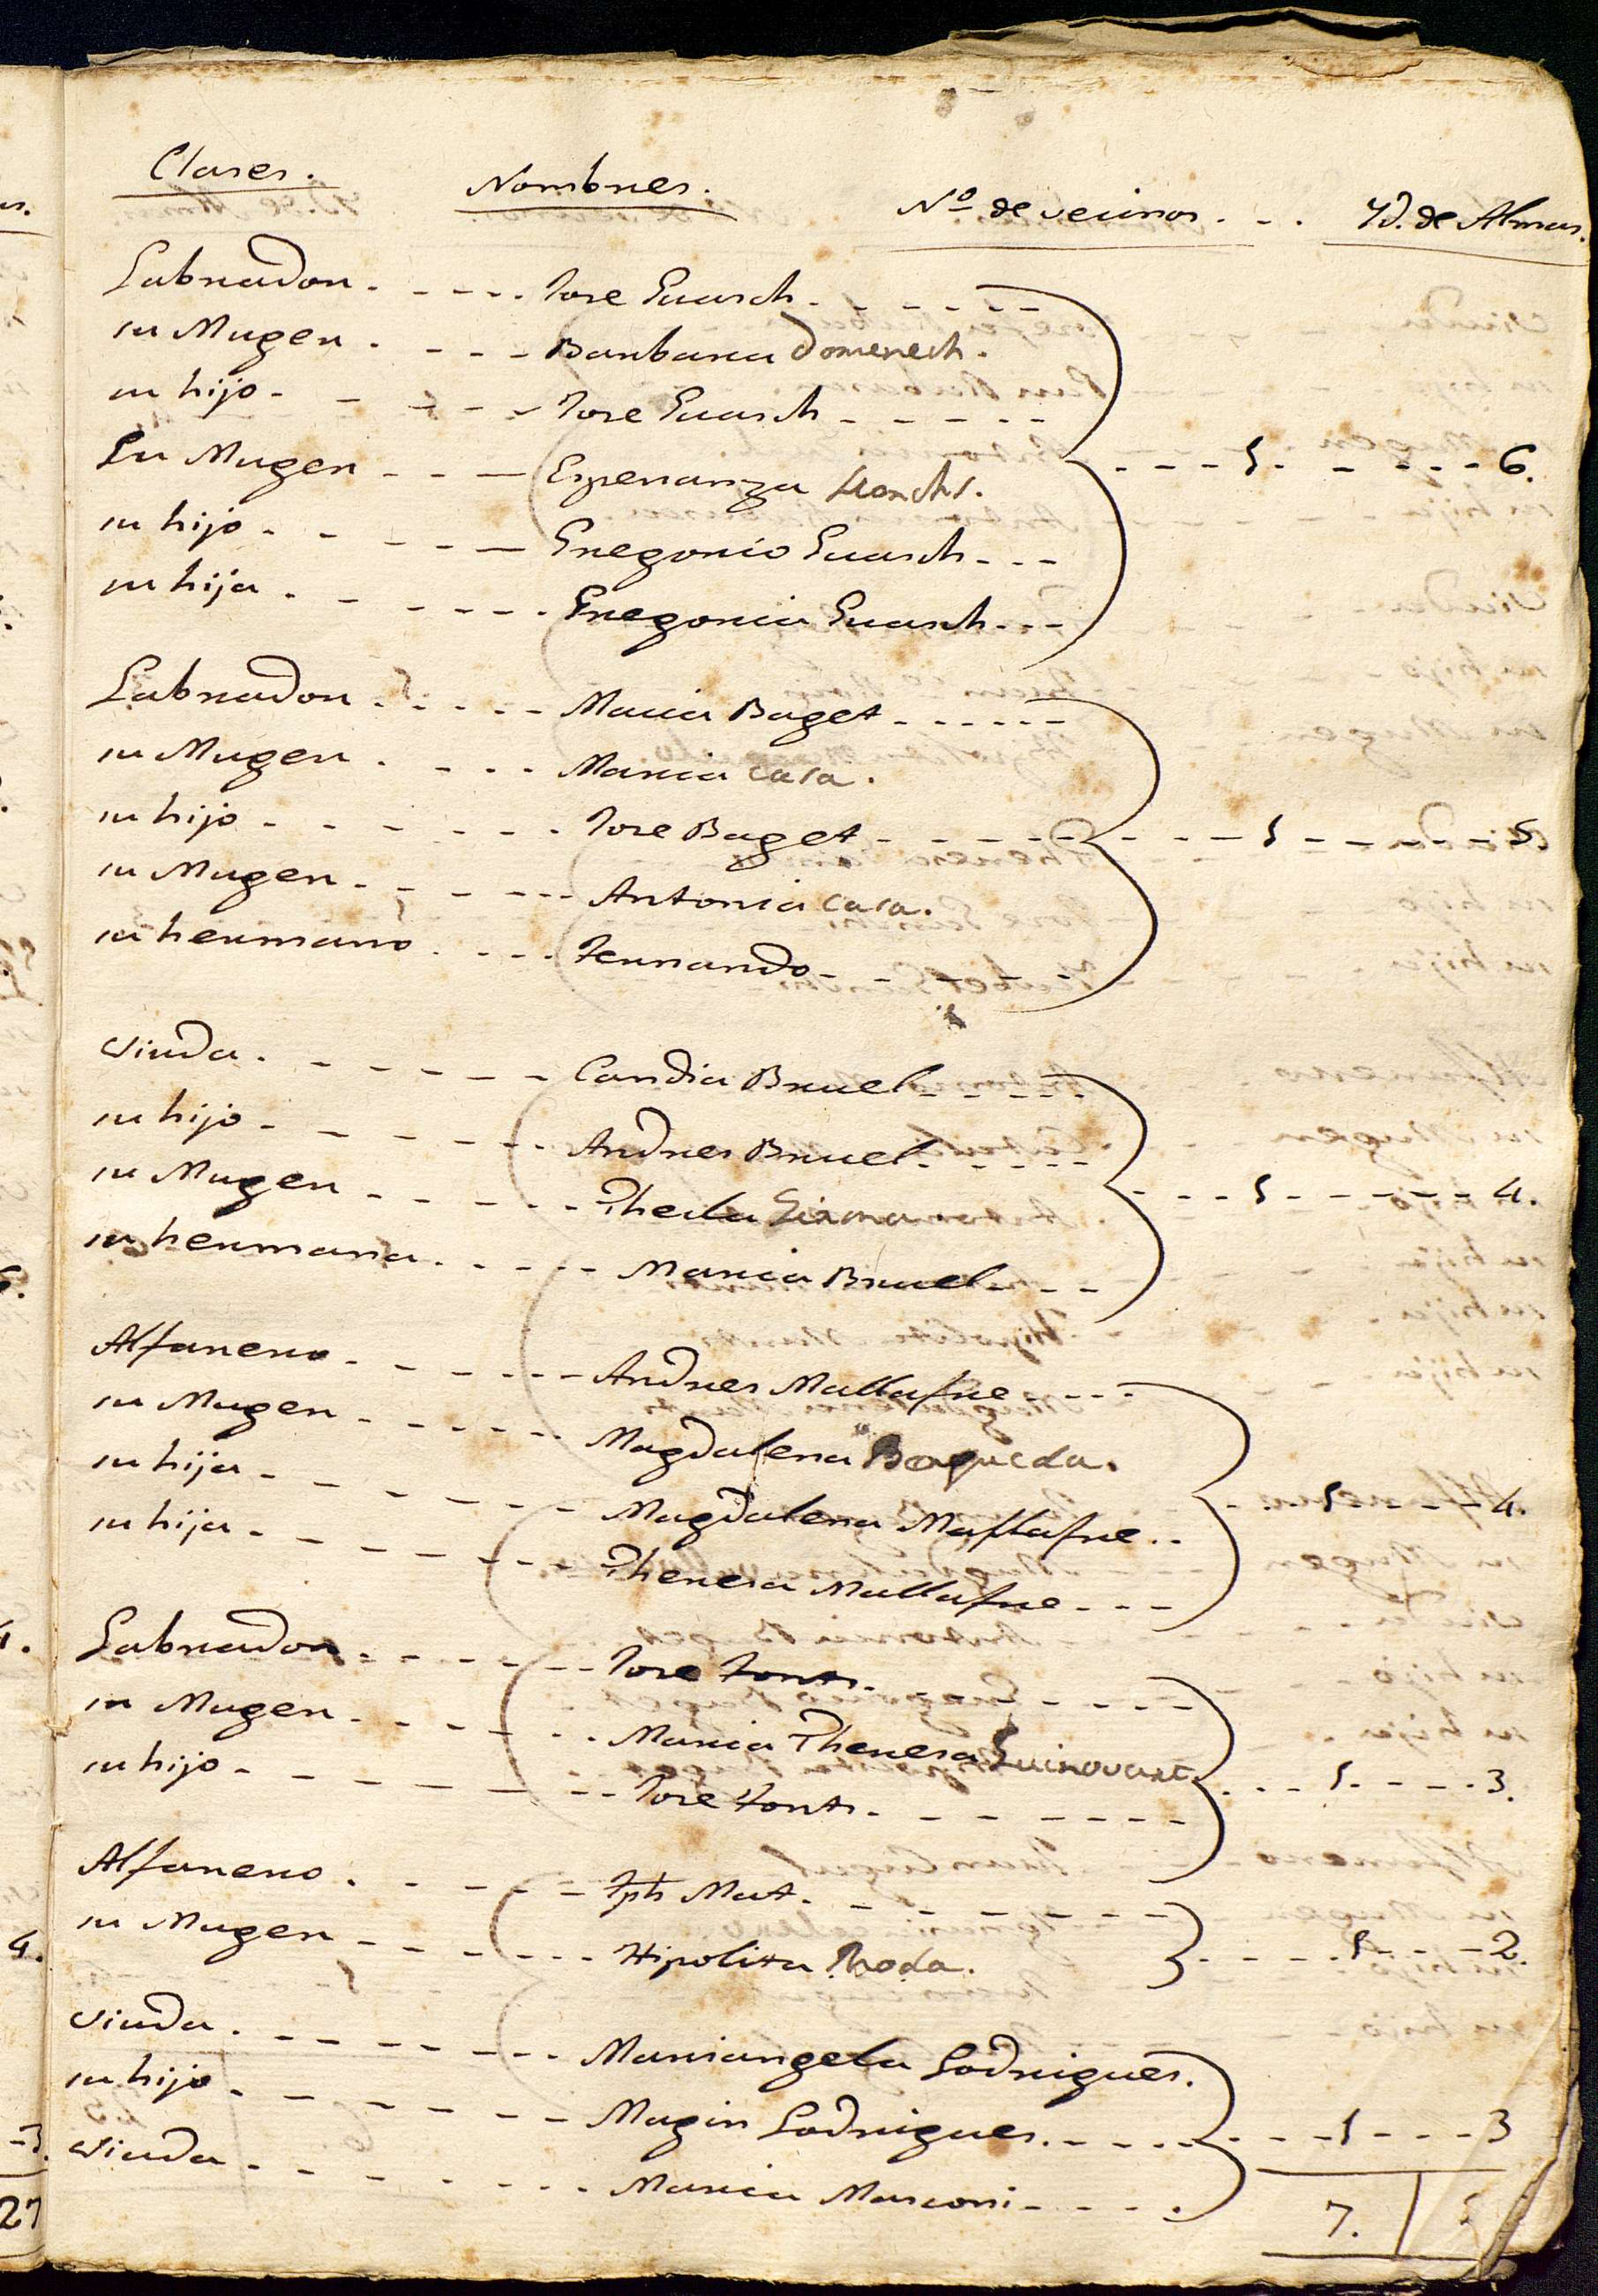 Clases. Nombres. Nº de vecinos. - . Yd. de Almas.
Labrador. - - - - Jose Guasch. - - - - -
su Muger. - - - Barbara Domenech.
su hijo - - - - Jose Guasch - - - - -
Su Muger - - - Esperanza - - - 1. - - - - 6.
su hijo - - - - - Gregorio Guasch - - -
su hija. - - - - - Gregoria Guasch - - -
Labrador. - - - - Macia Baget - - - - - -
su Muger. - - - Maria Casa.
su hijo - - - - - - Jose Baget - - - - - - - 1 - - - - - 5.
su Muger. - - - - Antonia Casa.
su hermano. - - - Fernando - - - - - -
viuda. - - - - - Candia Bruel - - - - -
su hijo - - - - - - Andres Bruel - - - - -
su Muger - - - - - Thecla - - - 1 - - - - - 4.
su hermana. - - - - Maria Bruel - - -
Alfarero - - - - - Andres Mallafre - - - -
su Muger - - - - - Magdalena Baqueda.
su hija - - - - - - Magdalena Mallafre. - - - 1 - - - 4.
su hija - - - - - - Theresa Mallafre - - -
Labrador - - - - - Jose Fonts. - - - - - -
su Muger. - - - - - Maria Theresa Guinovart
su hijo - - - - - - - Jose Fonts - - - - - - - - - 1. - - - 3.
Alfarero. - - - - Jph Mat. - - - - - - -
su Muger - - - - - - Hipolita Roda. - - - - 1 - - - 2.
viuda. - - - - - - Mariangela Rodrigues.
su hijo - - - - - - Magin Rodrigues. - - - - - - - 1 - - - 3
viuda - - - - - - - Maria Marconi - - - -
7.